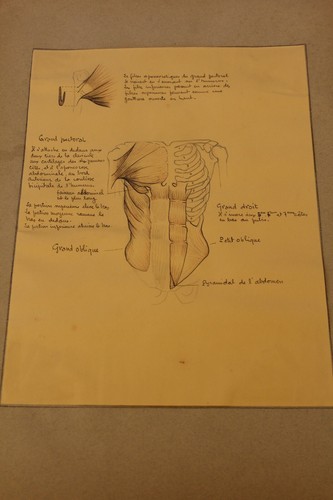 Les fibres aponévrotiques du grand pectoral
se croisent en s'insérant sur l'humerus.
les fibres inférieures passant au dessus des
fibres supérieures forment comme une
gouttière ouverte en haut.
Grand pectoral
Il s'attache en dedans aux
deux tiers de la clavicule
aux cartilages des
côtes, et à l'aponevrose
abdominale, au bord
antérieur de la coulisse
bicipitale de l'humerus
abdominal
et le plus long
La portion supérieure élève le bras
la portion moyenne ramène le
bras en dedans.
La portion inférieure abaisse le bras
Grand droit
Il s'insère aux 5eme 6eme et 7eme côtes
en bas au pubis.
Grand oblique
Petit oblique
Pyramidal de l'abdomen